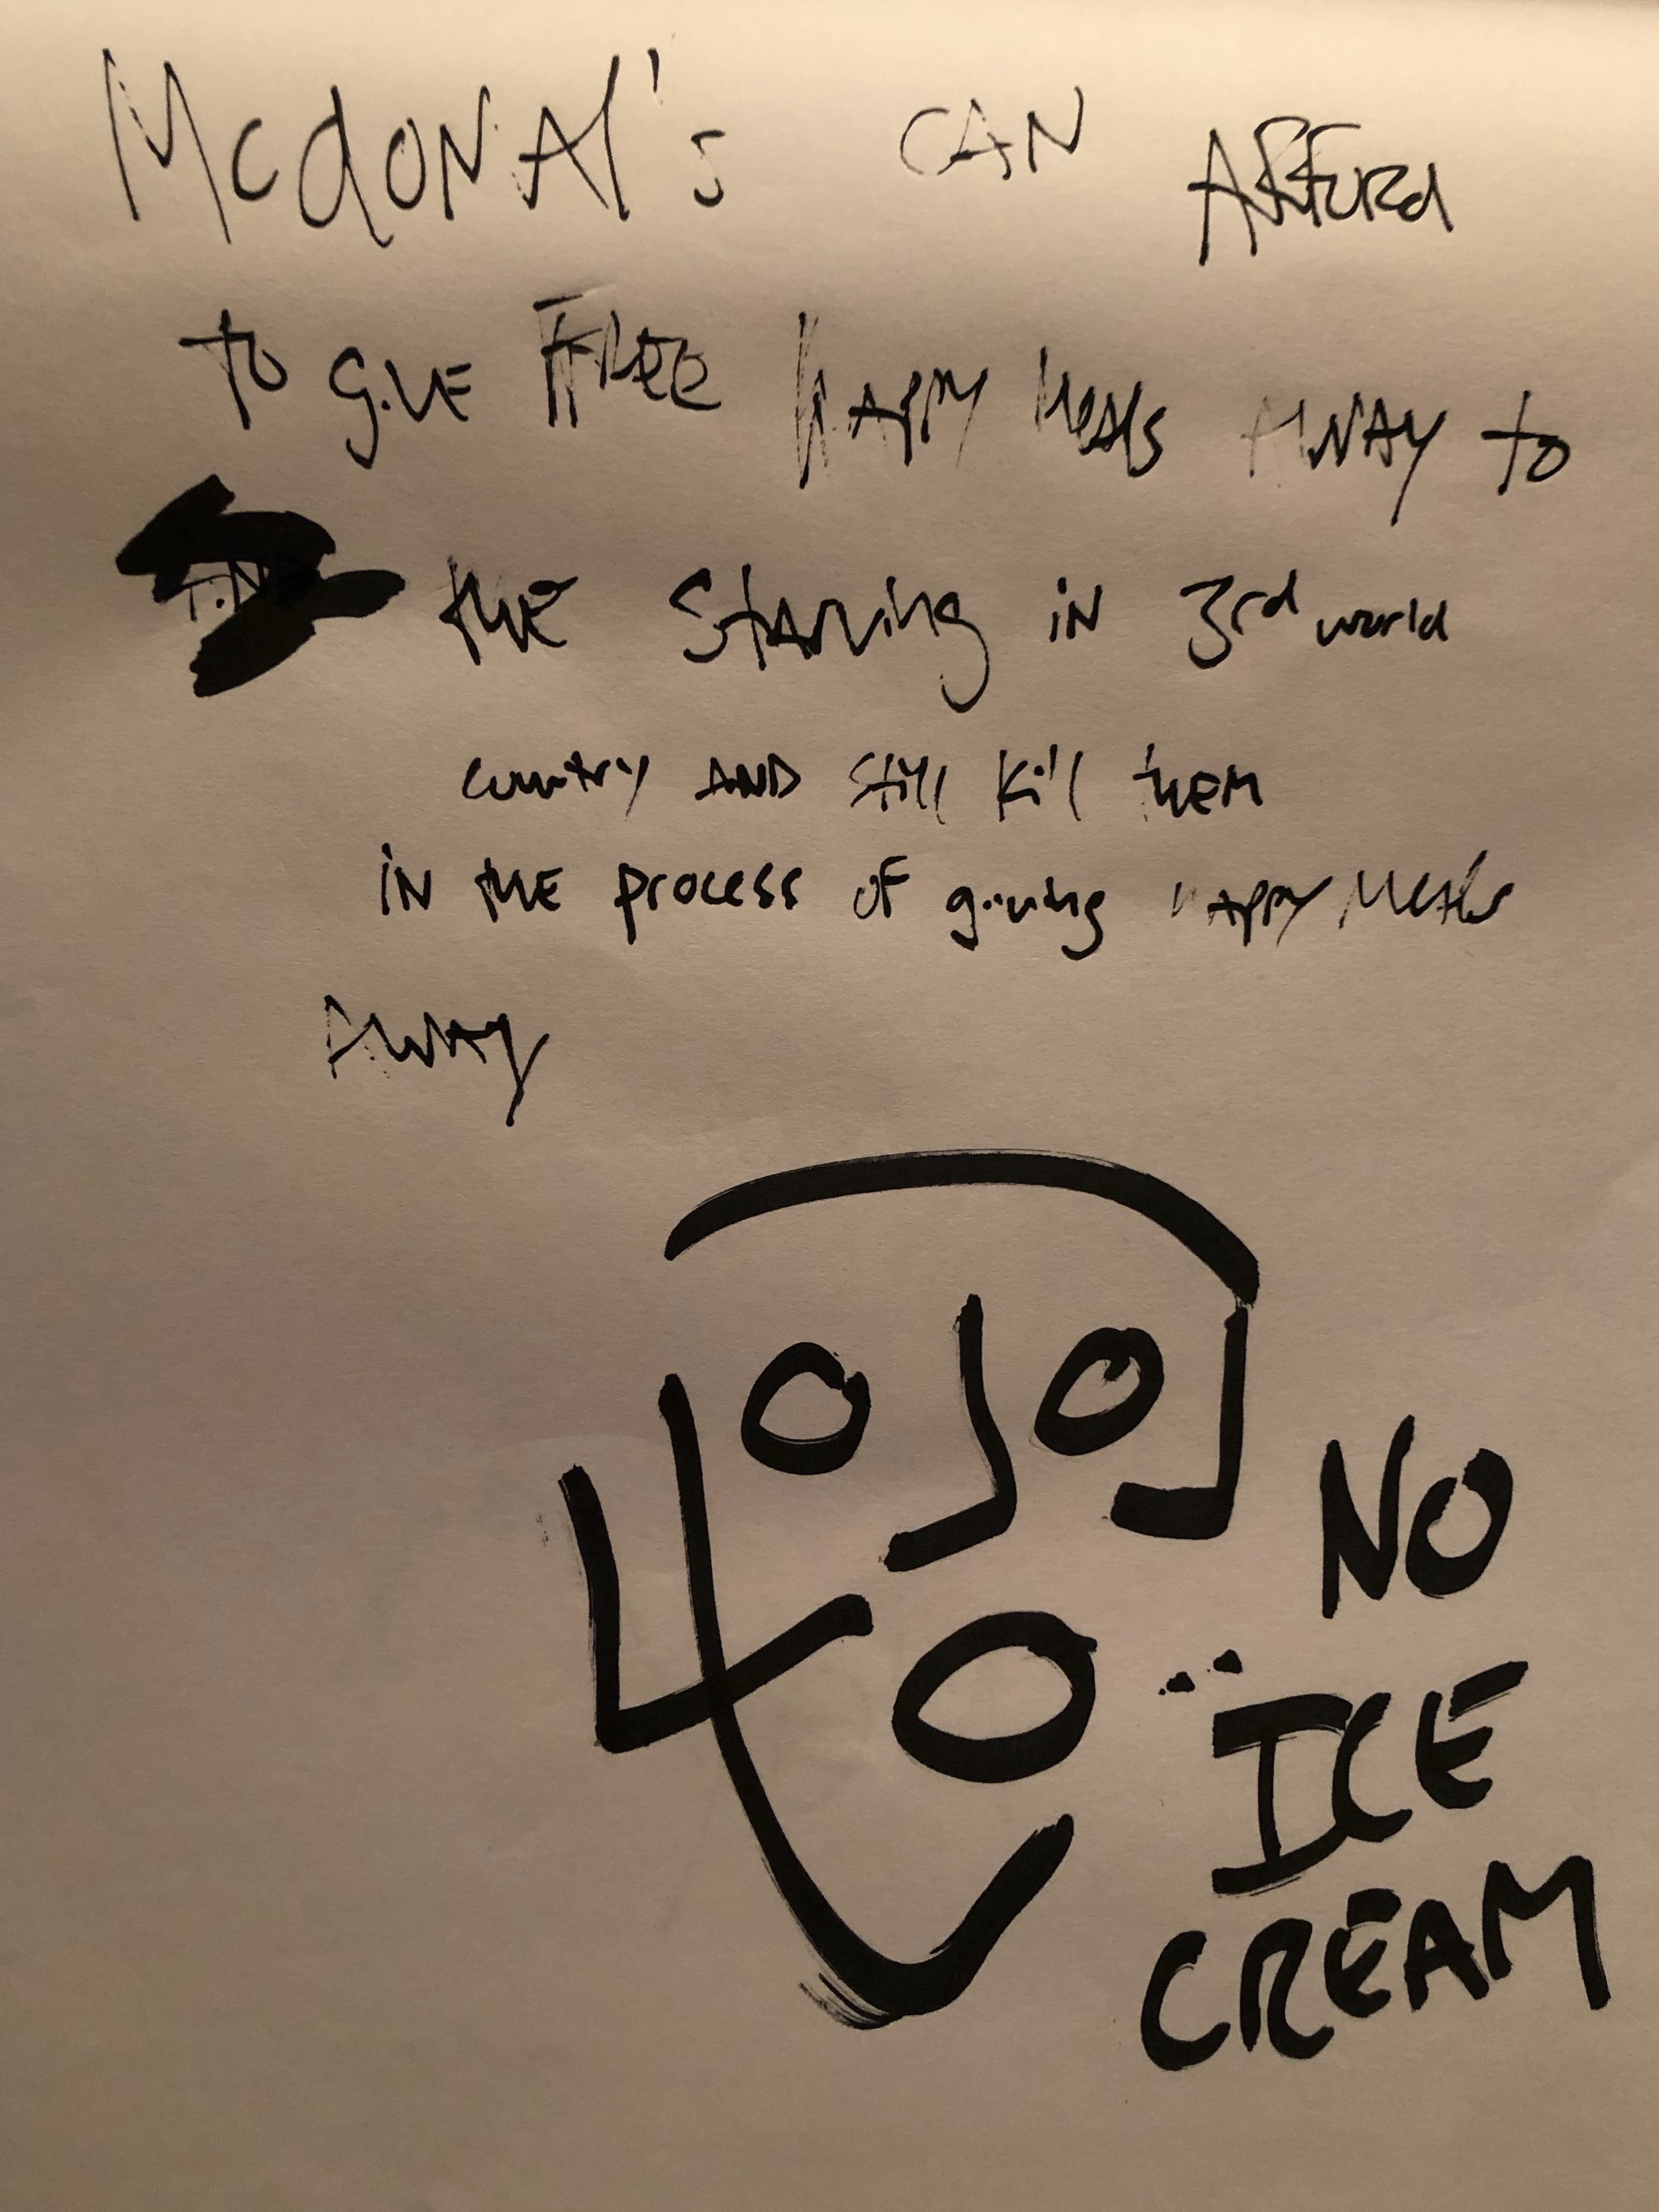 McdoNAl's CAN AFFord
to give FREE HAPPY MeAls AWAY to
the StArving iN 3rd world
country AND still Kill them
iN the process of giving HAPPY MeAls
AWAY
NO
ICE
CREAM